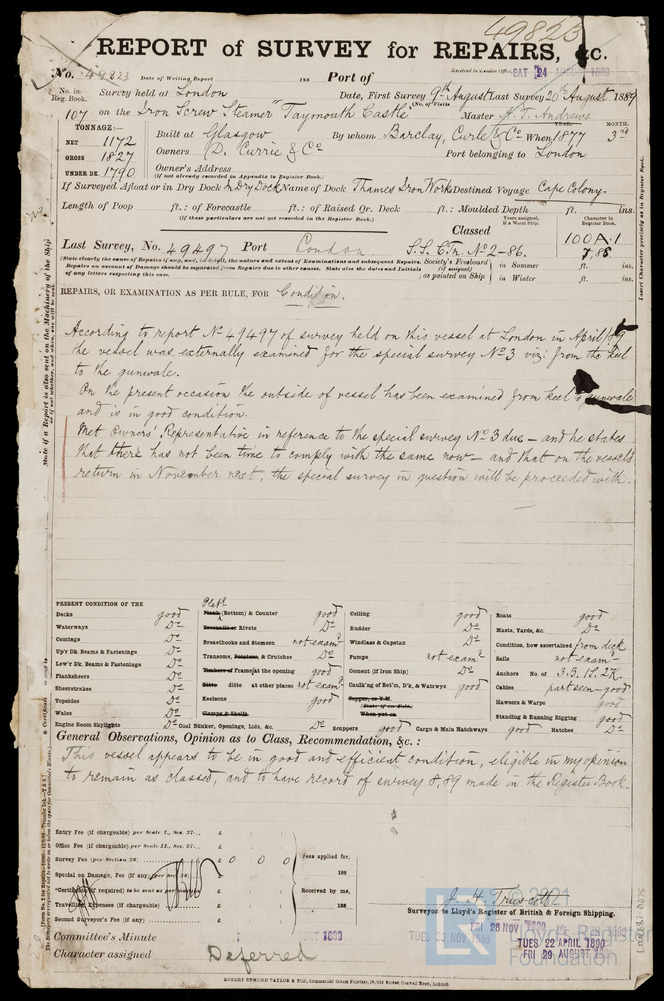 49823
REPORT of SURVEY for REPAIRS, &c.
No. 49823 Date of Writing Report 188 Port of Received in London Office, SAT 24 AUGUST 1889
No. in Reg. Book. Survey held at London Date, First Survey 9th August Last Survey 20th August 1889
(No. of Visits )
107 on the Iron Screw Steamer "Taymouth Castle" Master A. T. Andrews
TONNAGE:— YEAR. MONTH.
NET 1172 Built at Glasgow By whom Barclay, Curle & Co When 1877 3rd
GROSS 1827 Owners (D. Currie & Co Port belonging to London
UNDER DK. 1790 Owner's Address
(if not already recorded in Appendix to Register Book.)
If Surveyed Afloat or in Dry Dock In Dry Dock Name of Dock Thames Iron Works Destined Voyage Cape Colony.
Length of Poop ft.: of Forecastle ft.: of Raised Qr. Deck ft.: Moulded Depth ft. ins.
(if these particulars are not yet recorded in the Register Book.)
Years assigned, if a Wood Ship. Character in Register Book.
Classed 100 A.1
Last Survey, No. 49497 Port London S.S. C.Tr. No 2-86. 7,86
(State clearly the cause of Repairs if any, and, in detail, the nature and extent of Examinations and subsequent Repairs.
Repairs on account of Damage should be separated from Repairs due to other causes. State also the dates and Initials of any letters respecting this case.)
Society's Freeboard (if assigned) as painted on Ship
in Summer ft. ins.
in Winter ft. ins.
REPAIRS, OR EXAMINATION AS PER RULE, FOR Condition.
According to report No 49497 of survey held on this vessel at London in April /89
the vessel was externally examined for the special survey No 3 viz: from the keel
to the gunwale.
On the present occasion the outside of vessel has been examined from keel to gunwale
and is in good condition.
Met Owners' Representative in reference to the special survey No 3 due – and he states
that there has not been time to comply with the same now – and that on the vessel's
return in November next, the special survey in question will be proceeded with.
PRESENT CONDITION OF THE
Decks good
Waterways Do
Comings Do
Up'r Dk. Beams & Fastenings Do
Low'r Dk. Beams & Fastenings Do
Plansheers Do
Sheerstrakes Do
Topsides Do
Wales Do
Engine Room Skylights Do
Plate
Plank (Bottom) & Counter good
Treenails or Rivets Do
Breasthooks and Stemson not examd
Transoms, Pointers, & Crutches Do
Timbers of Frame at the opening good
Ditto ditto at other places not examd
Keelsons good
Clamps & Shelfs
Coal Bunker, Openings, Lids, &c. Do
Ceiling good
Rudder Do
Windlass & Capstan Do
Pumps not examd
Cement (if Iron Ship) Do
Caulk'ng of Bot'm, D'k, & Watrwys good
Copper, or Y.M.
(State if on Felt.)
When put on
Scuppers good Cargo & Main Hatchways good Hatches Do
Boats good
Masts, Yards, &c. Do
Condition, how ascertained from deck
Sails not examd
Anchors No. of 3.B. 1S. 2K.
Cables part seen – good
Hawsers & Warps good
Standing & Running Rigging good
General Observations, Opinion as to Class, Recommendation, &c.:
This vessel appears to be in good and efficient condition, eligible in my opinion
to remain as classed, and to have record of survey 8,89 made in the Register Book.
Entry Fee (if chargeable) per Scale I., Sec. 27... £ : :
Office Fee (if chargeable) per Scale II., Sec. 27... £ : :
Survey Fee (per Section 28) £ 0 0 0
Special or Damage, Fee (if any) (per Sec. 28) £
*Certificate (if required) to be sent as per margin
Travelling Expenses (if chargeable) £
Second Surveyor's Fee (if any) £
Fees applied for, 188
Received by me, 188
J. H. Truscott
Surveyor to Lloyd's Register of British & Foreign Shipping.
Committee's Minute
TUES 26 NOV 1889
FRI 28 NOV 1890
TUES 22 APRIL 1890
FRI 29 AUGUST 1890
Character assigned Deferred
© 2021
Lloyd's Register
Foundation
Insert Character precisely as in Register Book.